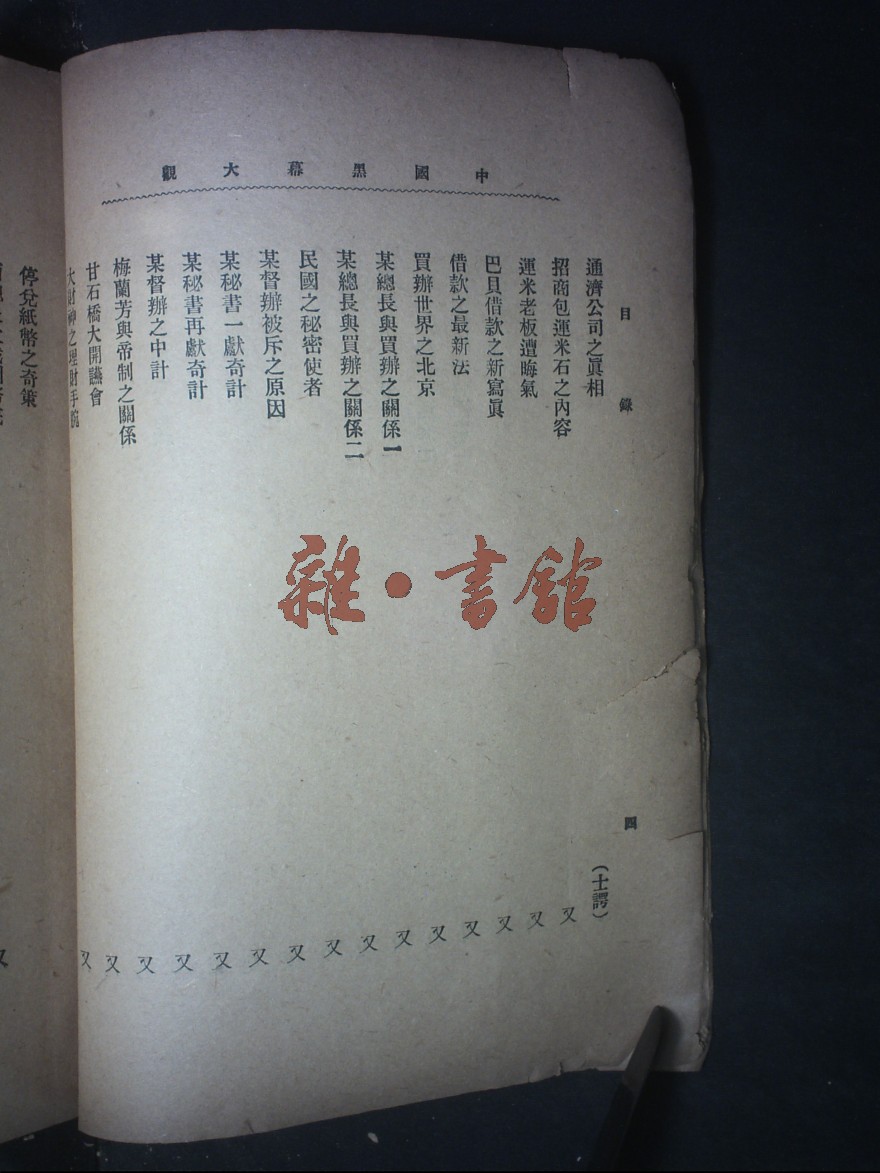 中國黑幕大觀
目錄 四
通濟公司之眞相 (士諤)
招商包運米石之內容 又
運米老板遭晦氣 又
巴貝借款之新寫眞 又
借款之最新法 又
買辦世界之北京 又
某總長與買辦之關係一 又
某總長與買辦之關係二 又
民國之秘密使者 又
某督辦被斥之原因 又
某秘書一獻奇計 又
某秘書再獻奇計 又
某督辦之中計 又
梅蘭芳與帝制之關係 又
甘石橋大開讌會 又
大財神之理財手腕 又
停兌紙幣之奇策
雜·書館